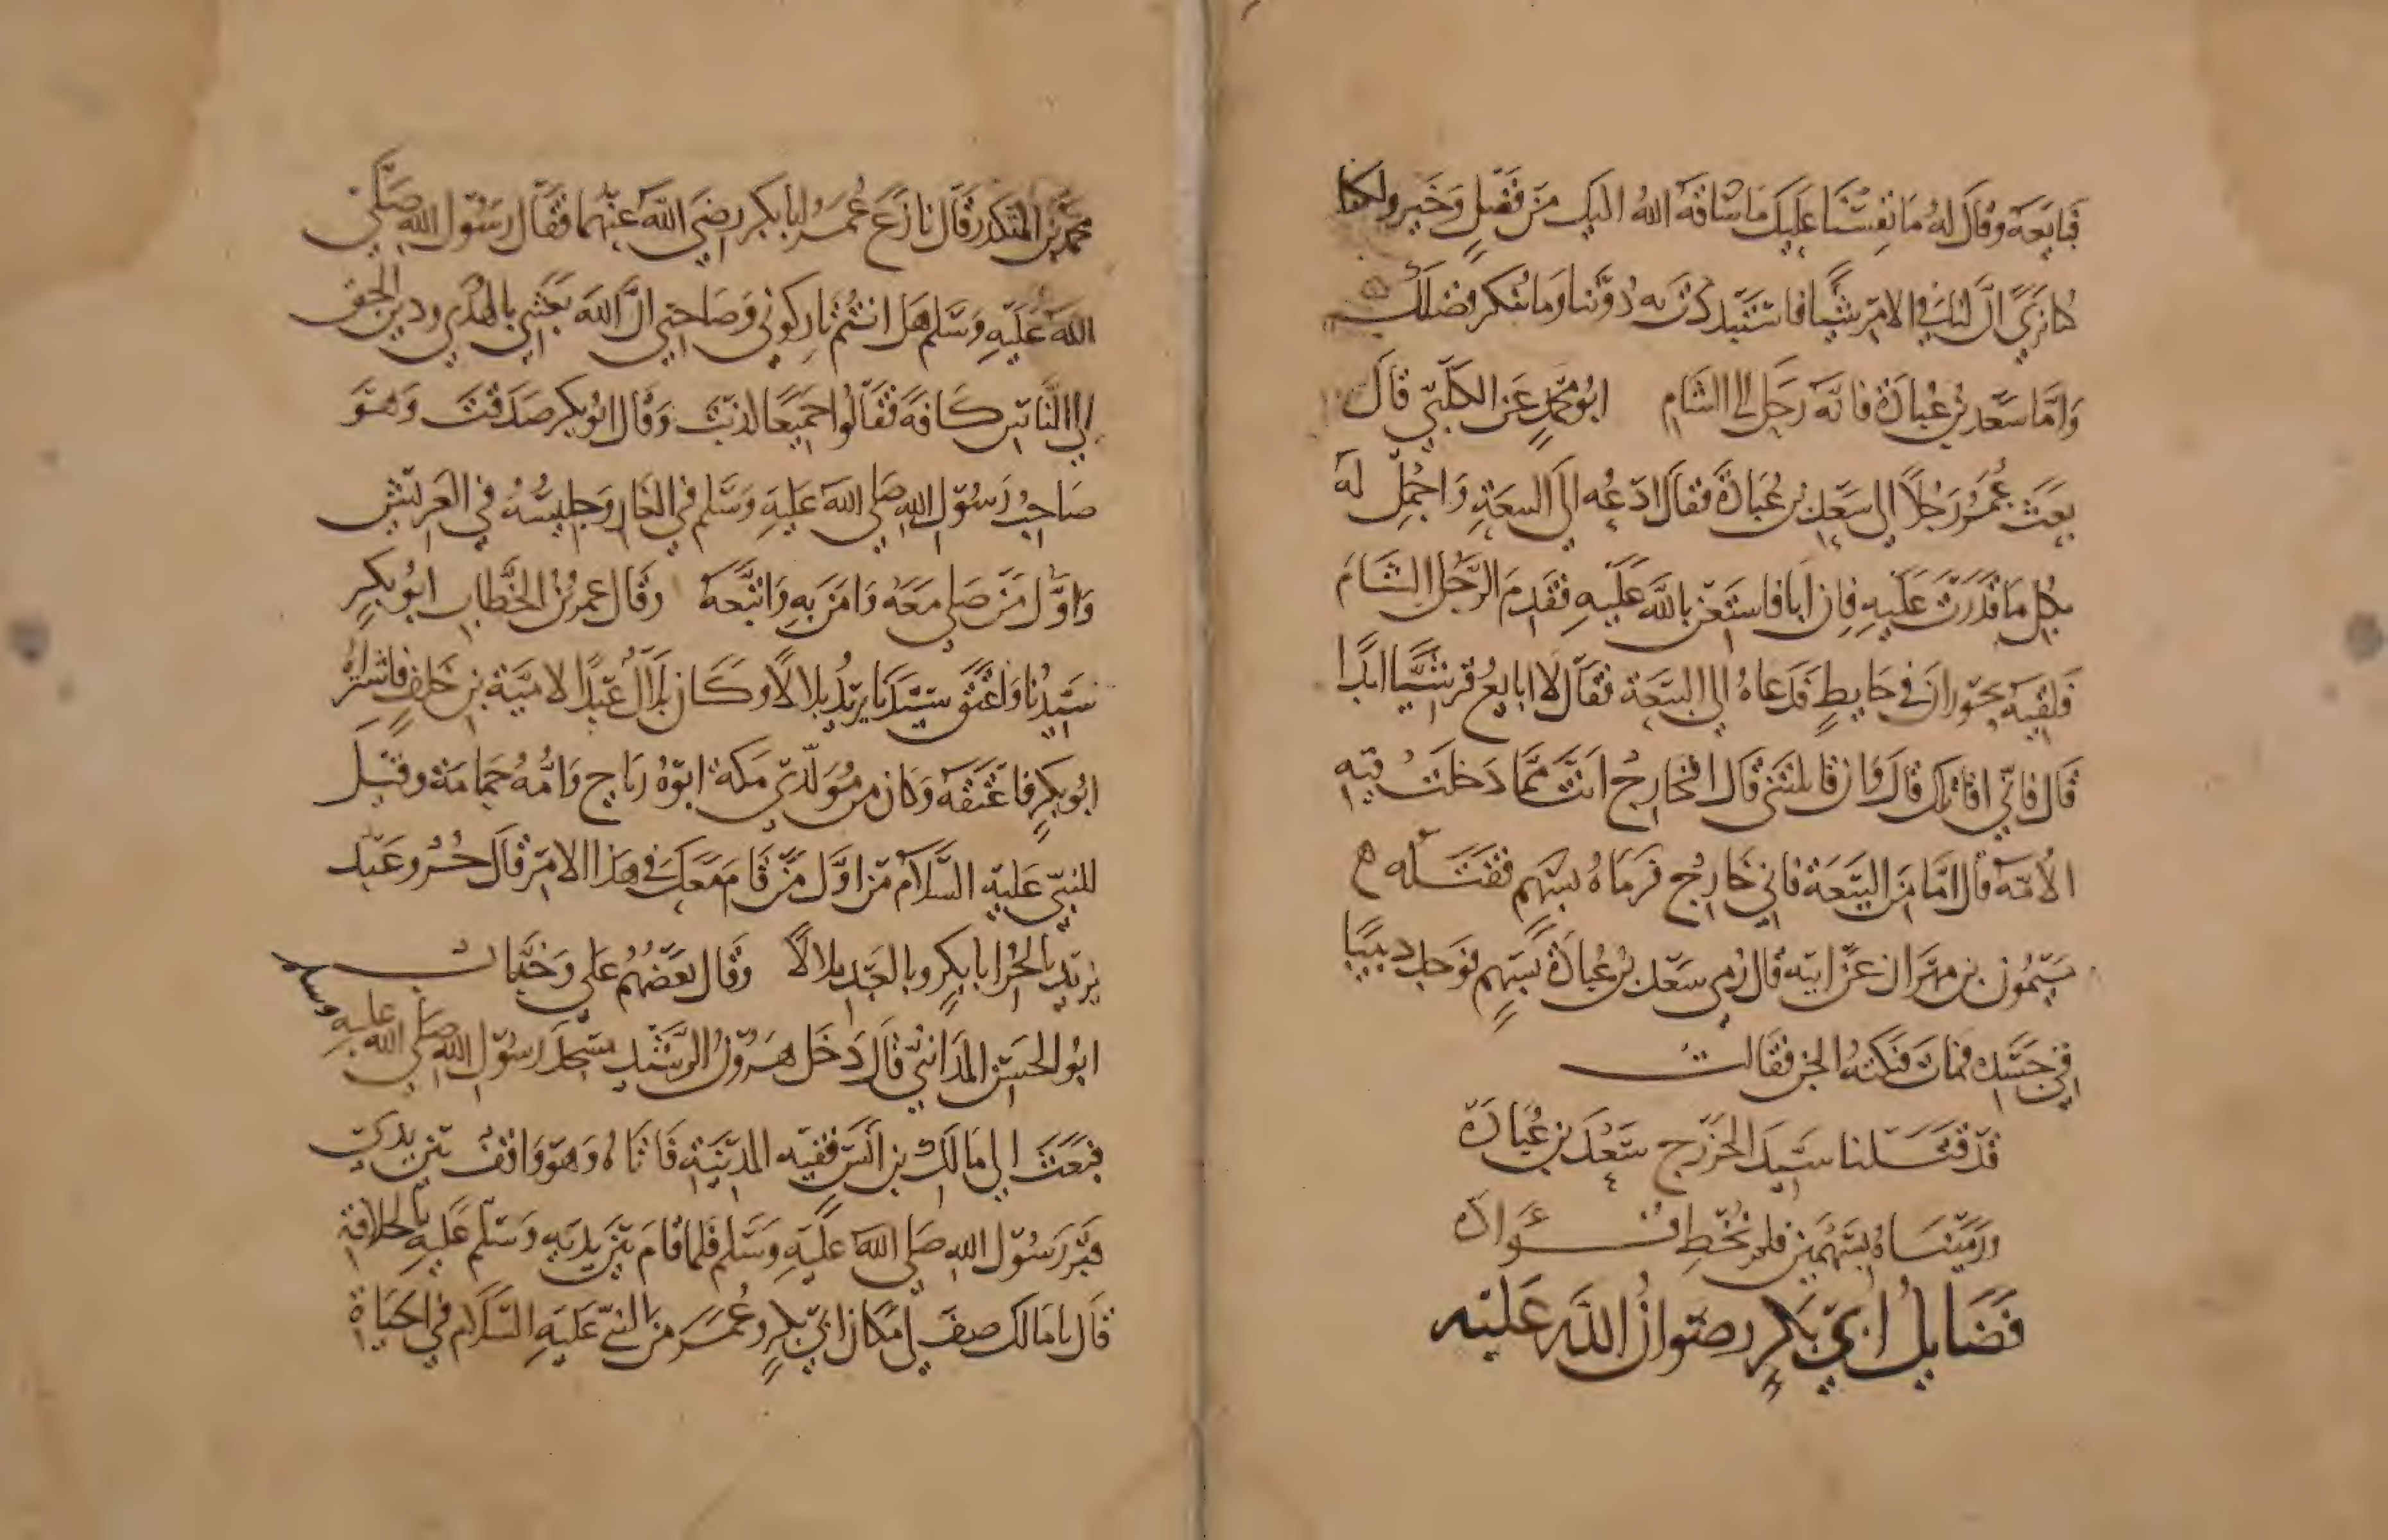 فبايعه وقال له ما نفسنا عليك ما ساقه الله اليك من فضل وخير ولكنا
كنا نري ان لنا في الامر شيا فاستبددت به دوننا وما ننكر فضلك
واما سعد بن عبادة فانه رحل الى الشام ابو محمد عن الكلبي قال
بعث عمر رجلا الي سعد بن عبادة فقال ادعه الي البيعة واحمل له
بكل ما قدرت عليه فان ابا فاستعن بالله عليه فقدم الرجل الشام
فلقيه بحوران في حايط فدعاه الي البيعة فقال لا ابايع قرشيا ابدا
قال فاني اقاتلك قال وان قاتلتني قال افخارج انت مما دخلت فيه
الامة قال اما من البيعة فاني خارج فرماه بسهم فقتله ه
ميمون بن مهران عن ابيه قال رمي سعد بن عبادة بسهم فوجد دبيبا
في جسده فمات فبكته الجن فقالت
قد قتلنا سيد الخزرج سعد بن عبادة
ورميناه بسهمين فلم نخط فؤاده
فضايل ابي بكر رضوان الله عليه
محمد بن المنكدر قال نازع عمر ابا بكر رضي الله عنهما فقال رسول الله صلي
الله عليه وسلم هل انتم تاركوني وصاحبي ان الله بعثني بالهدي ودين الحق
الي الناس كافة فقالوا جميعا كذبت وقال ابو بكر صدقت وهو
صاحب رسول الله صلي الله عليه وسلم في الغار وجليسه في العريش
واول من صلي معه وامن به واتبعه وقال عمر بن الخطاب ابو بكر
سيدنا واعتق سيدنا يريد بلالا وكان بلال عبدا لامية بن خلف فاشتراه
ابو بكر فاعتقه وكان من مولدي مكة ابوه رباح وامه حمامة وقيل
للنبي عليه السلام من اول من قام معك في هذا الامر قال حر وعبد
يريد بالحر ابا بكر وبالعبد بلالا وقال بعضهم علي وخباب
ابو الحسن المدائني قال دخل هرون الرشيد مسجد رسول الله صلي الله عليه وسلم
فبعث الي مالك بن انس فقيه المدينة فاتاه وهو واقف بين يدي
قبر رسول الله صلي الله عليه وسلم فلما قام بين يديه وسلم عليه بالخلافة
قال يا مالك صف لي مكان ابي بكر وعمر من النبي عليه السلام في الحياة